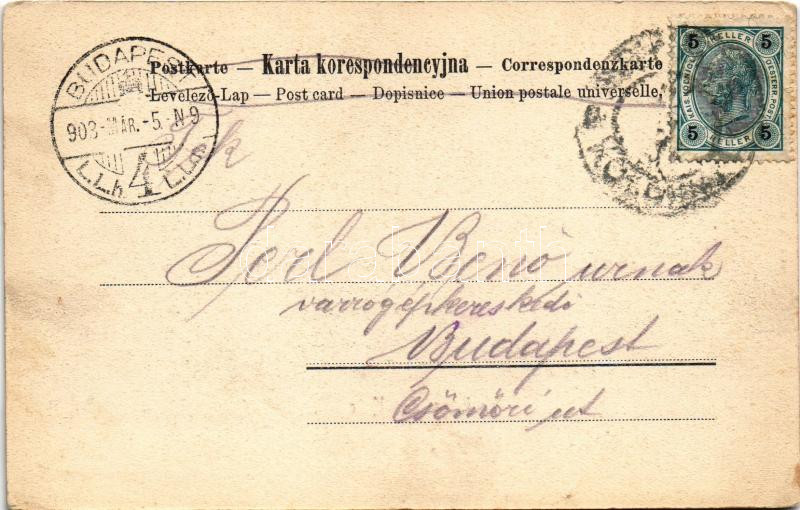 Postkarte — Karta korespondencyjna — Correspondenzkarte
Levelező-Lap — Post card — Dopisnice — Union postale universelle.
BUDAPES
903-MÁR.-5. N9
4
5 HELLER 5
KAIS. KOENIGL. OESTERR. POST
5 HELLER 5
Tek
Perl Benő urnak
varrogépkereskedő
Budapest
Csömöri ut